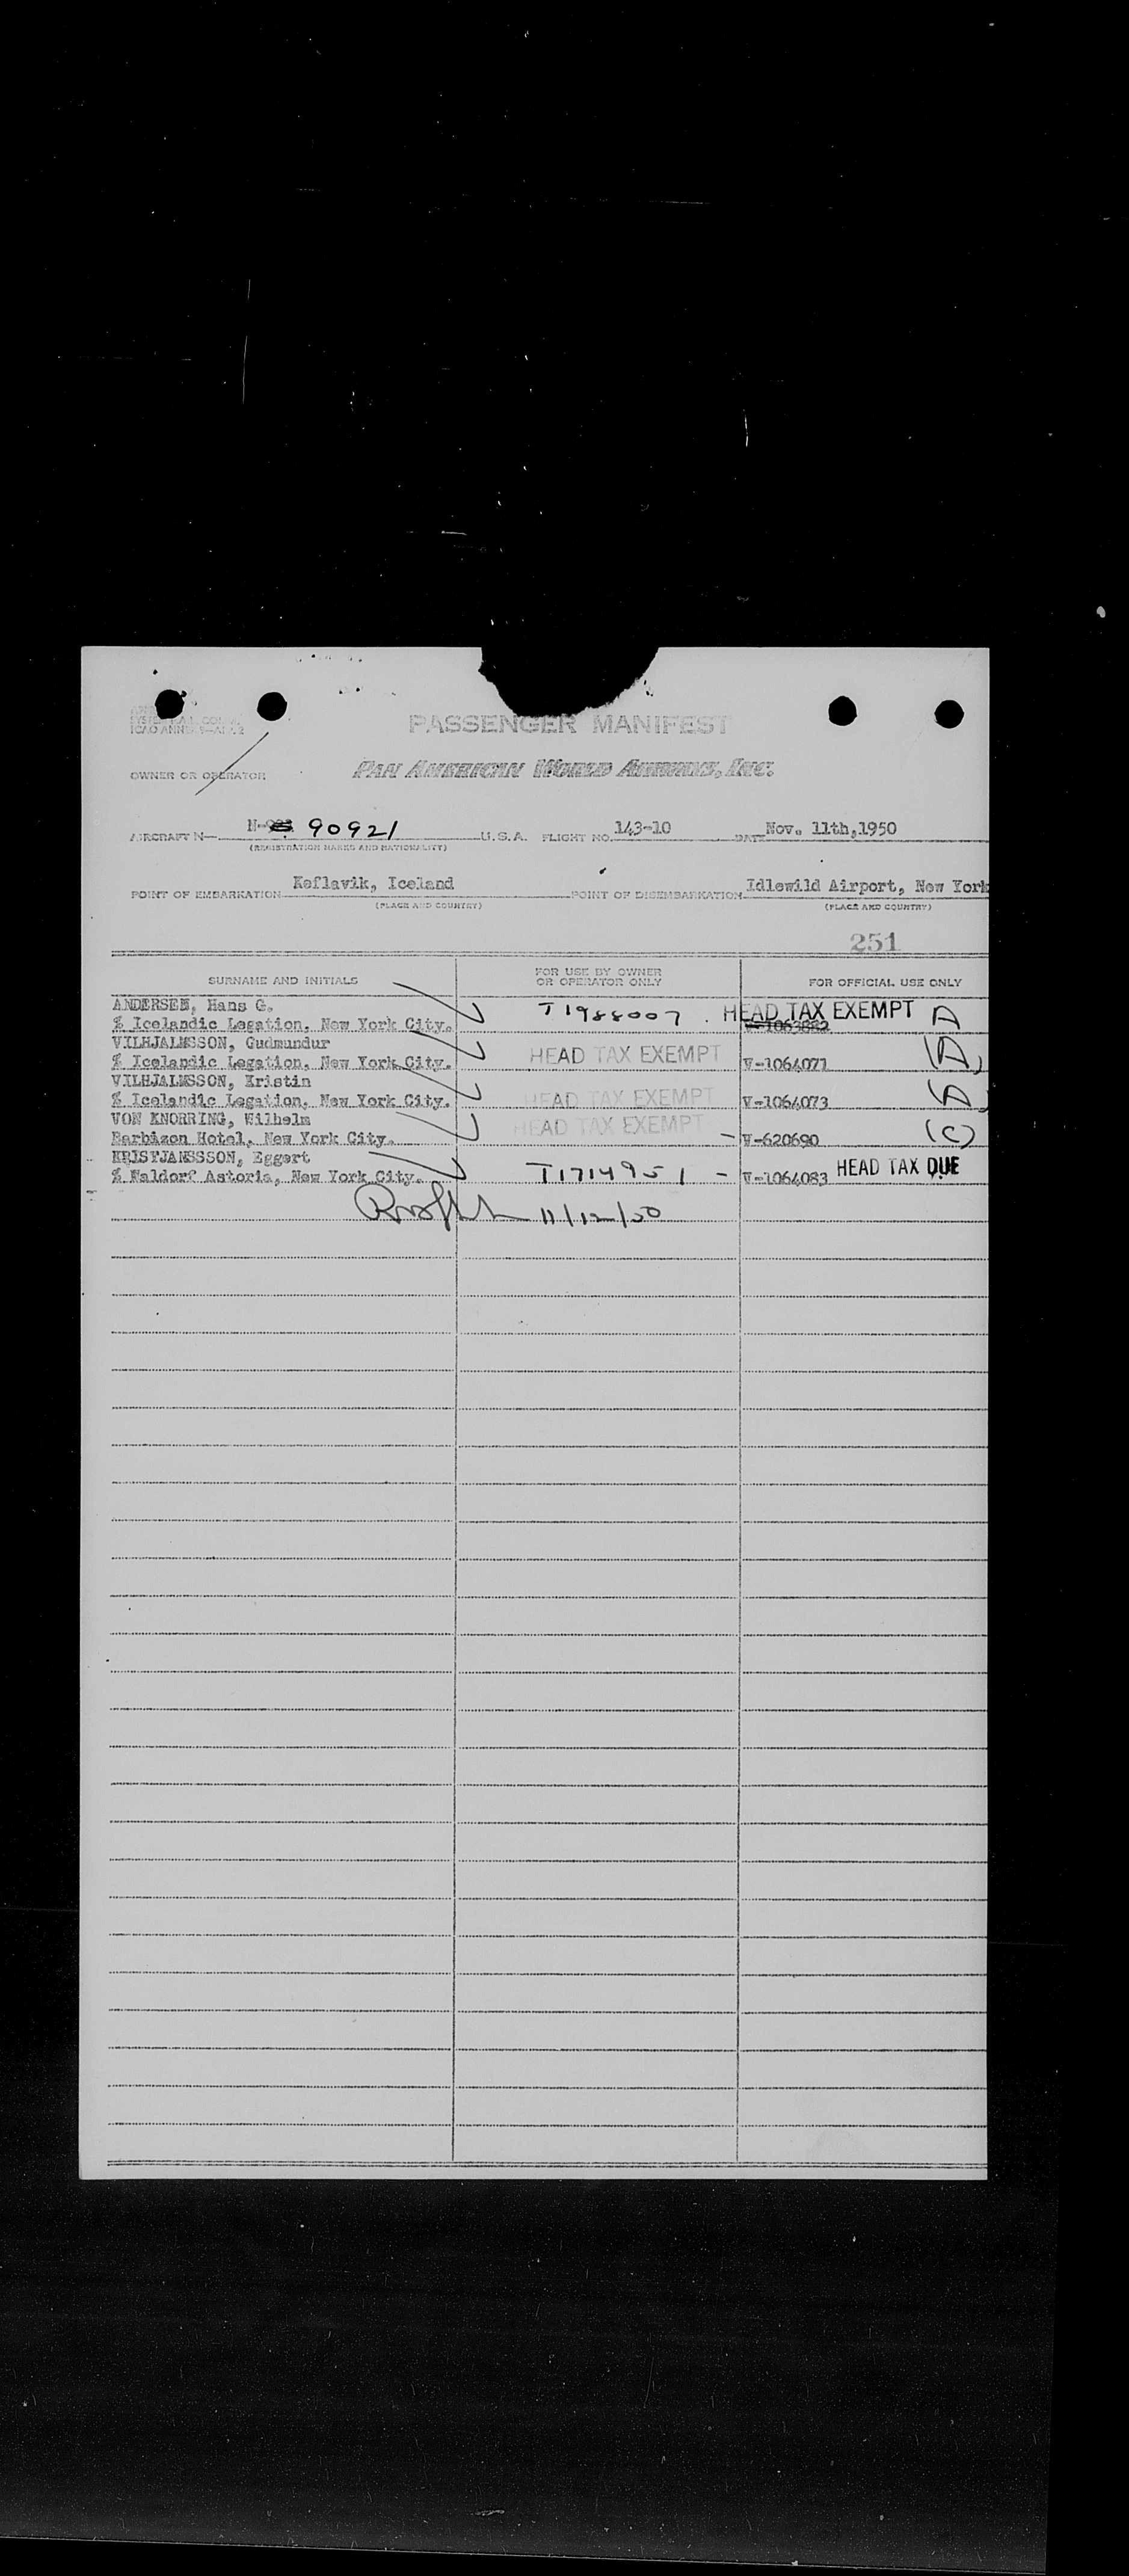 PASSENGER MANIFEST
OWNER OR OPERATOR PAN AMERICAN WORLD AIRWAYS, INC.
AIRCRAFT N— N- 90921 U.S.A. FLIGHT NO. 143-10 DATE Nov. 11th,1950
(REGISTRATION MARKS AND NATIONALITY)
POINT OF EMBARKATION Keflavik, Iceland POINT OF DISEMBARKATION Idlewild Airport, New York
(PLACE AND COUNTRY) (PLACE AND COUNTRY)
251
SURNAME AND INITIALS FOR USE BY OWNER OR OPERATOR ONLY FOR OFFICIAL USE ONLY
ANDERSEN, Hans G. T1988007 HEAD TAX EXEMPT A
% Icelandic Legation, New York City. V-1063882
VILHJALMSSON, Gudmundur HEAD TAX EXEMPT (A)
% Icelandic Legation, New York City. V-1064071
VILHJALMSSON, Kristin HEAD TAX EXEMPT A
% Icelandic Legation, New York City. V-1064073
VON KNORRING, Wilhelm HEAD TAX EXEMPT (C)
Barbizon Hotel, New York City. — V-620690
KRISTJANSSSON, Eggert HEAD TAX DUE
% Waldorf Astoria, New York City. T1714951 – V-1064083
11/12/50